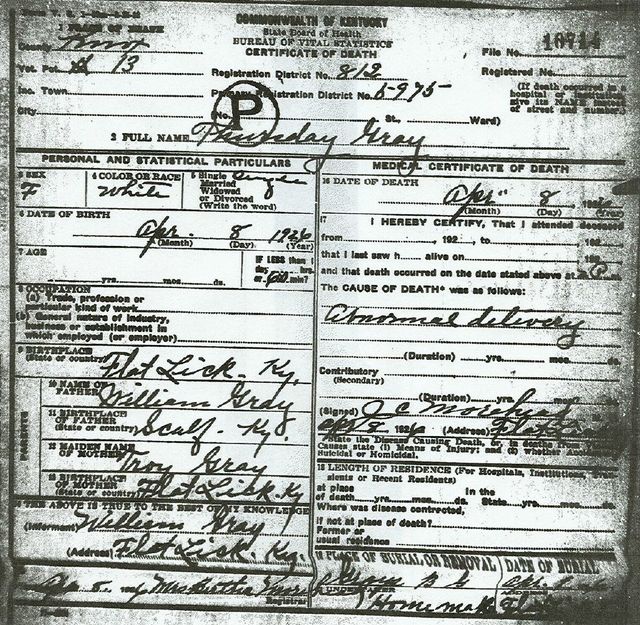 COMMONWEALTH OF KENTUCKY
State Board of Health
BUREAU OF VITAL STATISTICS
CERTIFICATE OF DEATH
1 PLACE OF DEATH
County Knox
File No. 10714
Vot. Pct. # 13
Registration District No. 812
Registered No.
Inc. Town
Primary Registration District No. 6-975
(If death occurred in a hospital or
give its NAME
of street and number.)
City
(No. St., Ward)
P
2 FULL NAME Thursday Gray
PERSONAL AND STATISTICAL PARTICULARS
3 SEX
F
4 COLOR OR RACE
White
5 Single
Married
Widowed
or Divorced
(Write the word)
Single
6 DATE OF BIRTH
Apr. 8 1926
(Month) (Day) (Year)
7 AGE
yrs. mos. ds.
IF LESS than 1
day hrs.
or min?
8 OCCUPATION
(a) Trade, profession or
particular kind of work
(b) General nature of industry,
business or establishment in
which employed (or employer)
9 BIRTHPLACE
(State or country) Flat Lick. Ky.
10 NAME OF
FATHER William Gray
11 BIRTHPLACE
OF FATHER
(State or country) Scalf. Ky.
12 MAIDEN NAME
OF MOTHER Troy Gray
13 BIRTHPLACE
OF MOTHER
(State or country) Flat Lick. Ky
PARENTS
THE ABOVE IS TRUE TO THE BEST OF MY KNOWLEDGE
(Informant) William Gray
(Address) Flat Lick. Ky.
Registrar
MEDICAL CERTIFICATE OF DEATH
16 DATE OF DEATH
Apr 8, 1926
(Month) (Day) (Year)
17 I HEREBY CERTIFY, That I attended deceased
from , 192 , to 192
that I last saw h alive on 192
and that death occurred on the date stated above at P
The CAUSE OF DEATH* was as follows:
Abnormal delivery
(Duration) yrs. mos. ds.
Contributory
(Secondary)
(Duration) yrs. mos.
(Signed) J C Morehead
8 1926 (Address)
*State the Disease Causing Death, or, in deaths
Causes state (1) Means of Injury; and (2) whether
Suicidal or Homicidal.
18 LENGTH OF RESIDENCE (For Hospitals, Institutions,
sients or Recent Residents)
at place
of death yrs. mos. ds. In the
State yrs. mos. ds.
Where was disease contracted,
if not at place of death?
Former or
usual residence
19 PLACE OF BURIAL OR REMOVAL
DATE OF BURIAL
UNDERTAKER
Home made